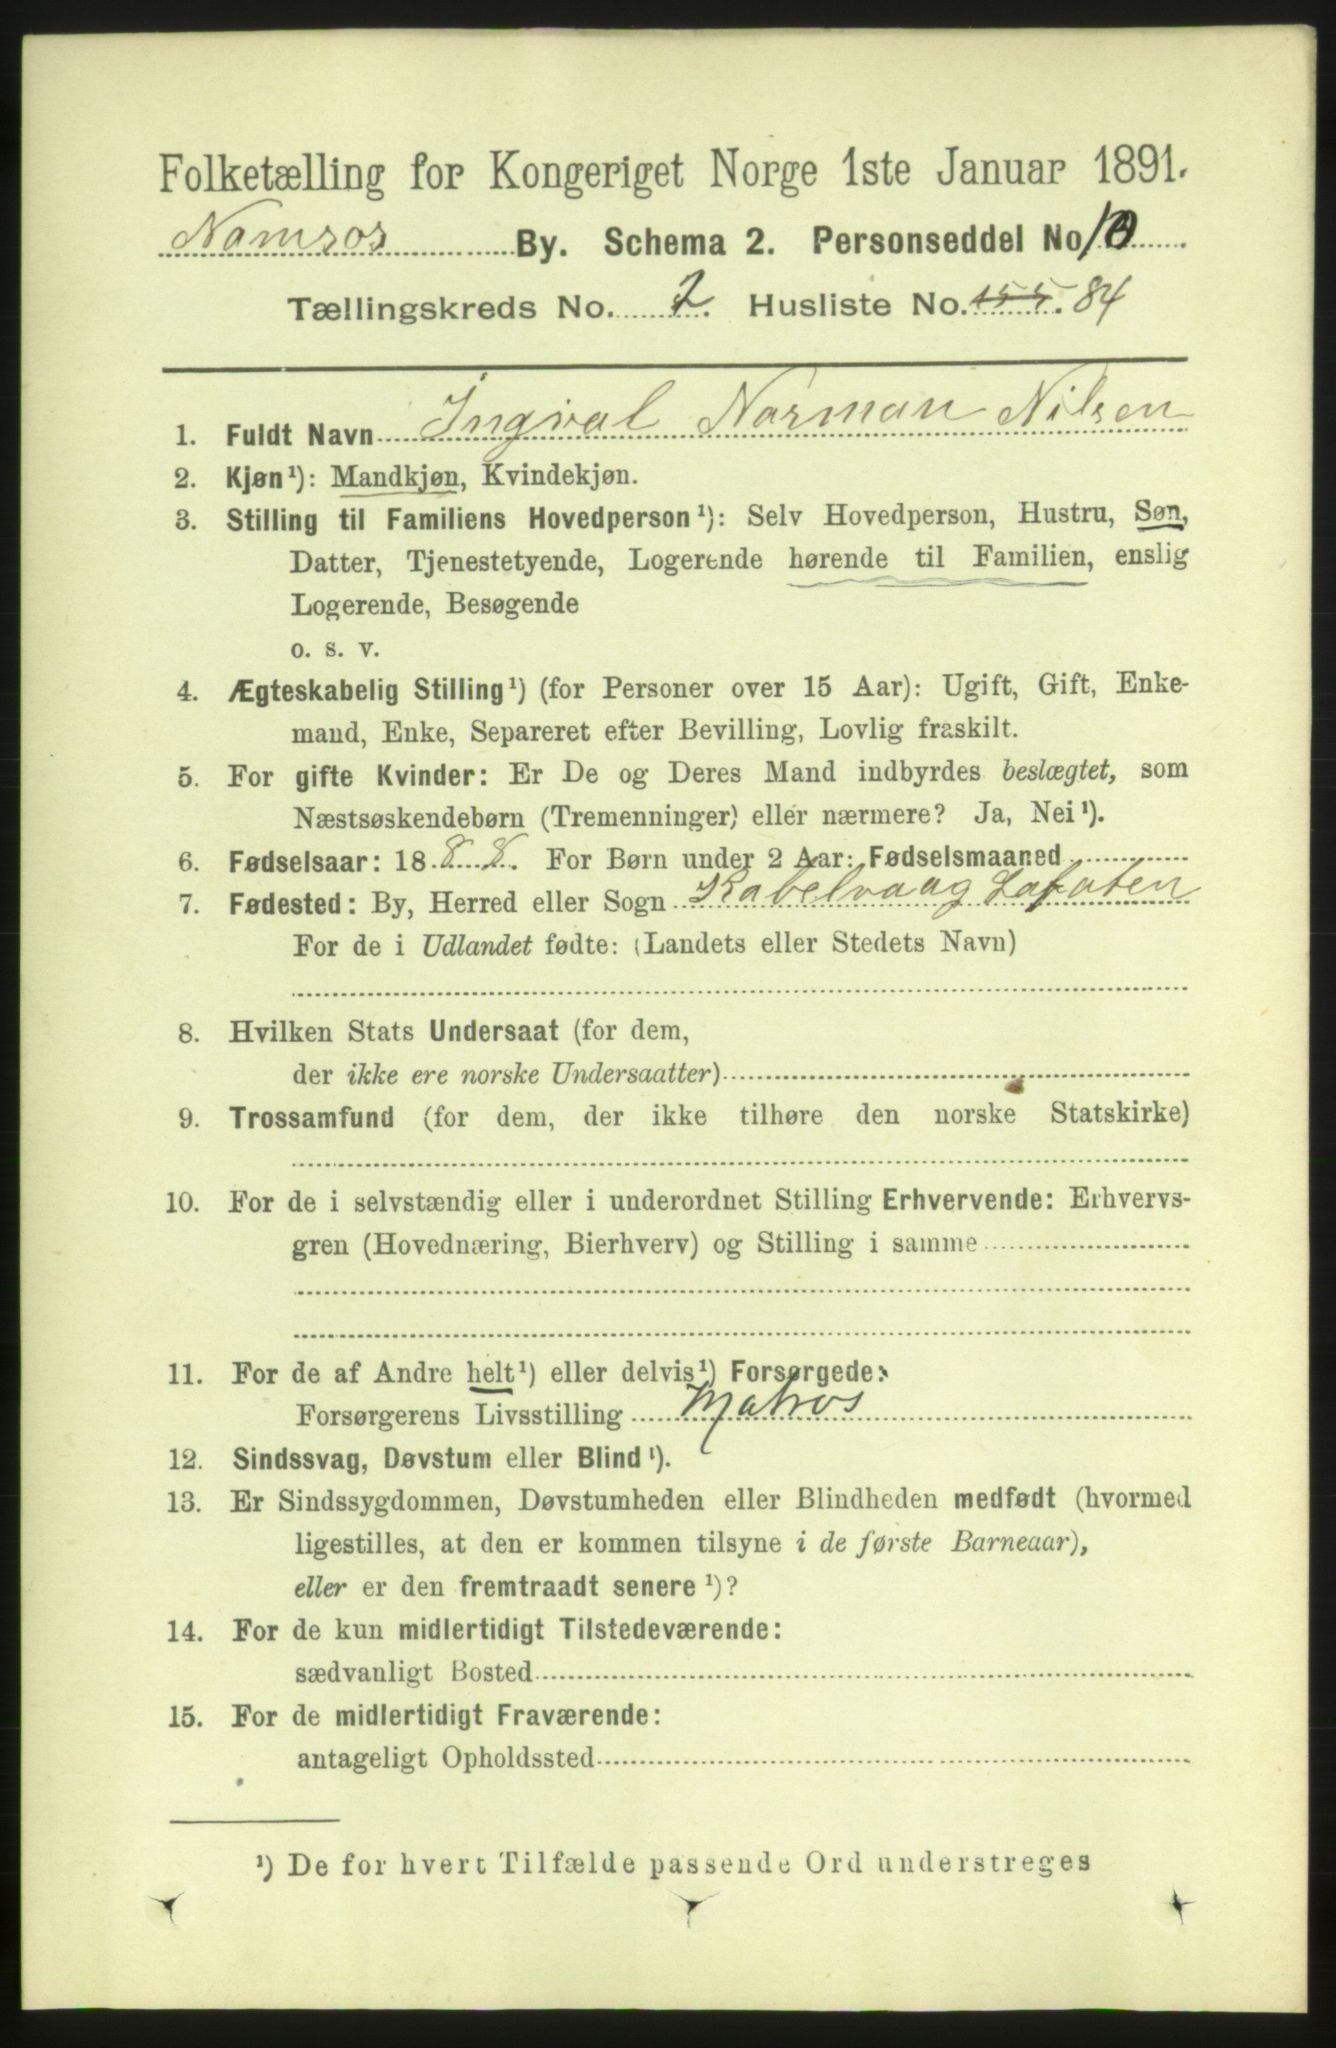 Folketælling for Kongeriget Norge 1ste Januar 1891.
Namsos By. Schema 2. Personseddel No 10
Tællingskreds No. 2. Husliste No. 155. 84
1. Fuldt Navn Ingval Norman Nilsen
2. Kjøn¹): Mandkjøn, Kvindekjøn.
3. Stilling til Familiens Hovedperson¹): Selv Hovedperson, Hustru, Søn,
Datter, Tjenestetyende, Logerende hørende til Familien, enslig
Logerende, Besøgende
o. s. v.
4. Ægteskabelig Stilling¹) (for Personer over 15 Aar): Ugift, Gift, Enke-
mand, Enke, Separeret efter Bevilling, Lovlig fraskilt.
5. For gifte Kvinder: Er De og Deres Mand indbyrdes beslægtet, som
Næstsøskendebørn (Tremenninger) eller nærmere? Ja, Nei¹).
6. Fødselsaar: 1888. For Børn under 2 Aar: Fødselsmaaned
7. Fødested: By, Herred eller Sogn Kabelvaag Lofoten
For de i Udlandet fødte: (Landets eller Stedets Navn)
8. Hvilken Stats Undersaat (for dem,
der ikke ere norske Undersaatter)
9. Trossamfund (for dem, der ikke tilhøre den norske Statskirke)
10. For de i selvstændig eller i underordnet Stilling Erhvervende: Erhvervs-
gren (Hovednæring, Bierhverv) og Stilling i samme
11. For de af Andre helt¹) eller delvis¹) Forsørgede:
Forsørgerens Livsstilling Matros
12. Sindssvag, Døvstum eller Blind¹).
13. Er Sindssygdommen, Døvstumheden eller Blindheden medfødt (hvormed
ligestilles, at den er kommen tilsyne i de første Barneaar),
eller er den fremtraadt senere¹)?
14. For de kun midlertidigt Tilstedeværende:
sædvanligt Bosted
15. For de midlertidigt Fraværende:
antageligt Opholdssted
¹) De for hvert Tilfælde passende Ord understreges